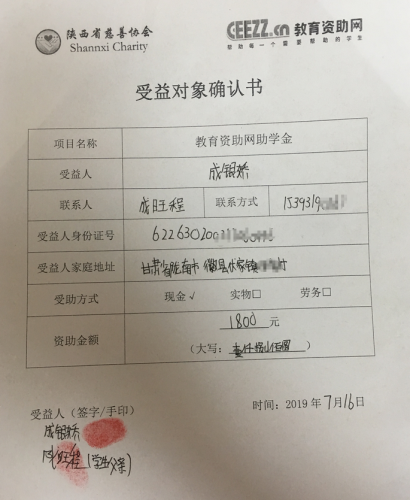 陕西省慈善协会
Shannxi Charity
CEEZZ.cn 教育资助网
帮助每一个需要帮助的学生
受益对象确认书
项目名称 教育资助网助学金
受益人 成银娇
联系人 成旺程 联系方式 1539319
受益人身份证号 62263020021
受益人家庭地址 甘肃省陇南市
受助方式 现金√ 实物□ 劳务□
资助金额 1800 元
(大写: 壹仟捌佰圆)
受益人(签字/手印) 时间: 2019 年 7 月 16 日
成银娇
成旺程(学生父亲)